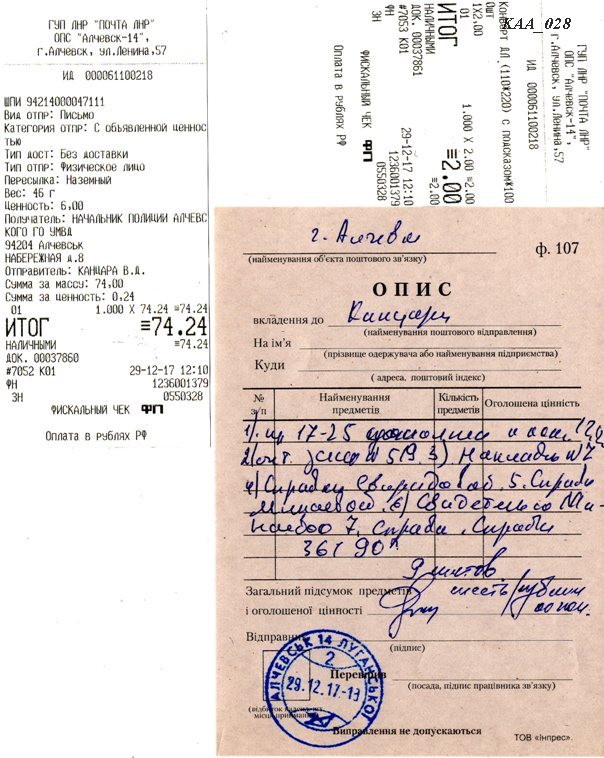 ГУП ЛНР "ПОЧТА ЛНР"
ОПС "Алчевск-14",
г.Алчевск, ул.Ленина,57
ИД 000061100218
ШПИ 94214000047111
Вид отпр: Письмо
Категория отпр: С объявленной ценнос
тью
Тип дост: Без доставки
Тип отпр: Физическое лицо
Пересылка: Наземный
Вес: 46 г
Ценность: 6,00
Получатель: НАЧАЛЬНИК ПОЛИЦИИ АЛЧЕВС
КОГО ГО УМВД
94204 Алчевськ
НАБЕРЕЖНАЯ д.8
Отправитель: КАНЦАРА В.Д.
Сумма за массу: 74,00
Сумма за ценность: 0,24
01 1.000 X 74.24 =74.24
ИТОГ =74.24
НАЛИЧНЫМИ =74.24
ДОК. 00037860
#7052 К01 29-12-17 12:10
ФН 1236001379
ЗН 0550328
ФИСКАЛЬНЫЙ ЧЕК ФП
Оплата в рублях РФ
KAA_028
ГУП ЛНР "ПОЧТА ЛНР"
ОПС "Алчевск-14",
г.Алчевск, ул.Ленина,57
ИД 000061100218
Конверт ДЛ (110*220) с подсказом*100
0шт
1X2,00
01 1.000 X 2.00 =2.00
ИТОГ =2.00
НАЛИЧНЫМИ =2.00
ДОК. 00037861
#7053 К01 29-12-17 12:10
ФН 1236001379
ЗН 0550328
ФИСКАЛЬНЫЙ ЧЕК ФП
Оплата в рублях РФ
г. Алчевск
ф. 107
(найменування об'єкта поштового зв'язку)
ОПИС
вкладення до
(найменування поштового відправлення)
На ім'я
(прізвище одержувача або найменування підприємства)
Куди
( адреса, поштовий індекс)
№ з/п Найменування предметів Кількість предметів Оголошена цінність
1). 17-25
2) 3) Накладн
4) Справку 5. Справк
6) Свидетельство
7. Справк
361 90
9 листов
Загальний підсумок предметів шесть рублей
і оголошеної цінності 00 коп.
Відправник
(підпис)
Перевірив
(посада, підпис працівника зв'язку)
АЛЧЕВСЬК 14 ЛУГАНСЬКОЇ
2
29.12.17-13
(відбиток календ. шт.
місця приймання)
Виправлення не допускаються
ТОВ «Інпрес».